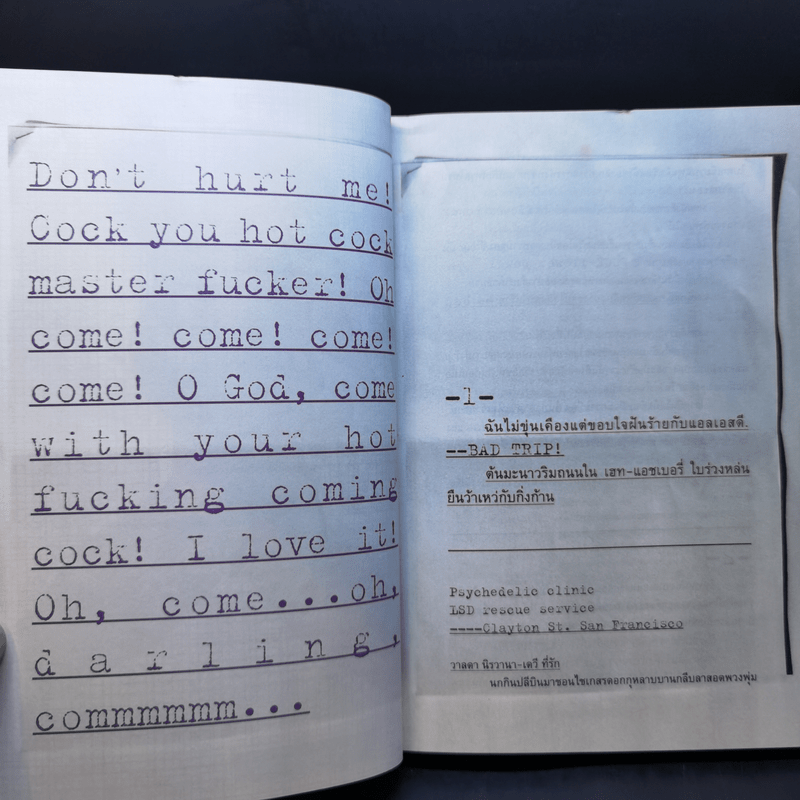 Don't hurt me!
Cock you hot cock
master fucker! Oh
come! come! come!
come! O God, come
with your hot
fucking coming
cock! I love it!
Oh, come...oh,
d a r l i n g ,
commmmmm...
-1-
ฉันไม่ขุ่นเคืองแต่ขอบใจฝันร้ายกับแอลเอสดี.
--BAD TRIP!
ต้นมะนาวริมถนนใน เฮท-แอชเบอรี่ ใบร่วงหล่น
ยืนว้าเหว่กับกิ่งก้าน
Psychedelic clinic
LSD rescue service
----Clayton St. San Francisco
วาลดา นิรวานา-เดวี ที่รัก
นกกินปลีบินมาชอนไชเกสรดอกกุหลาบบานกลีบลาสอดพวงพุ่ม